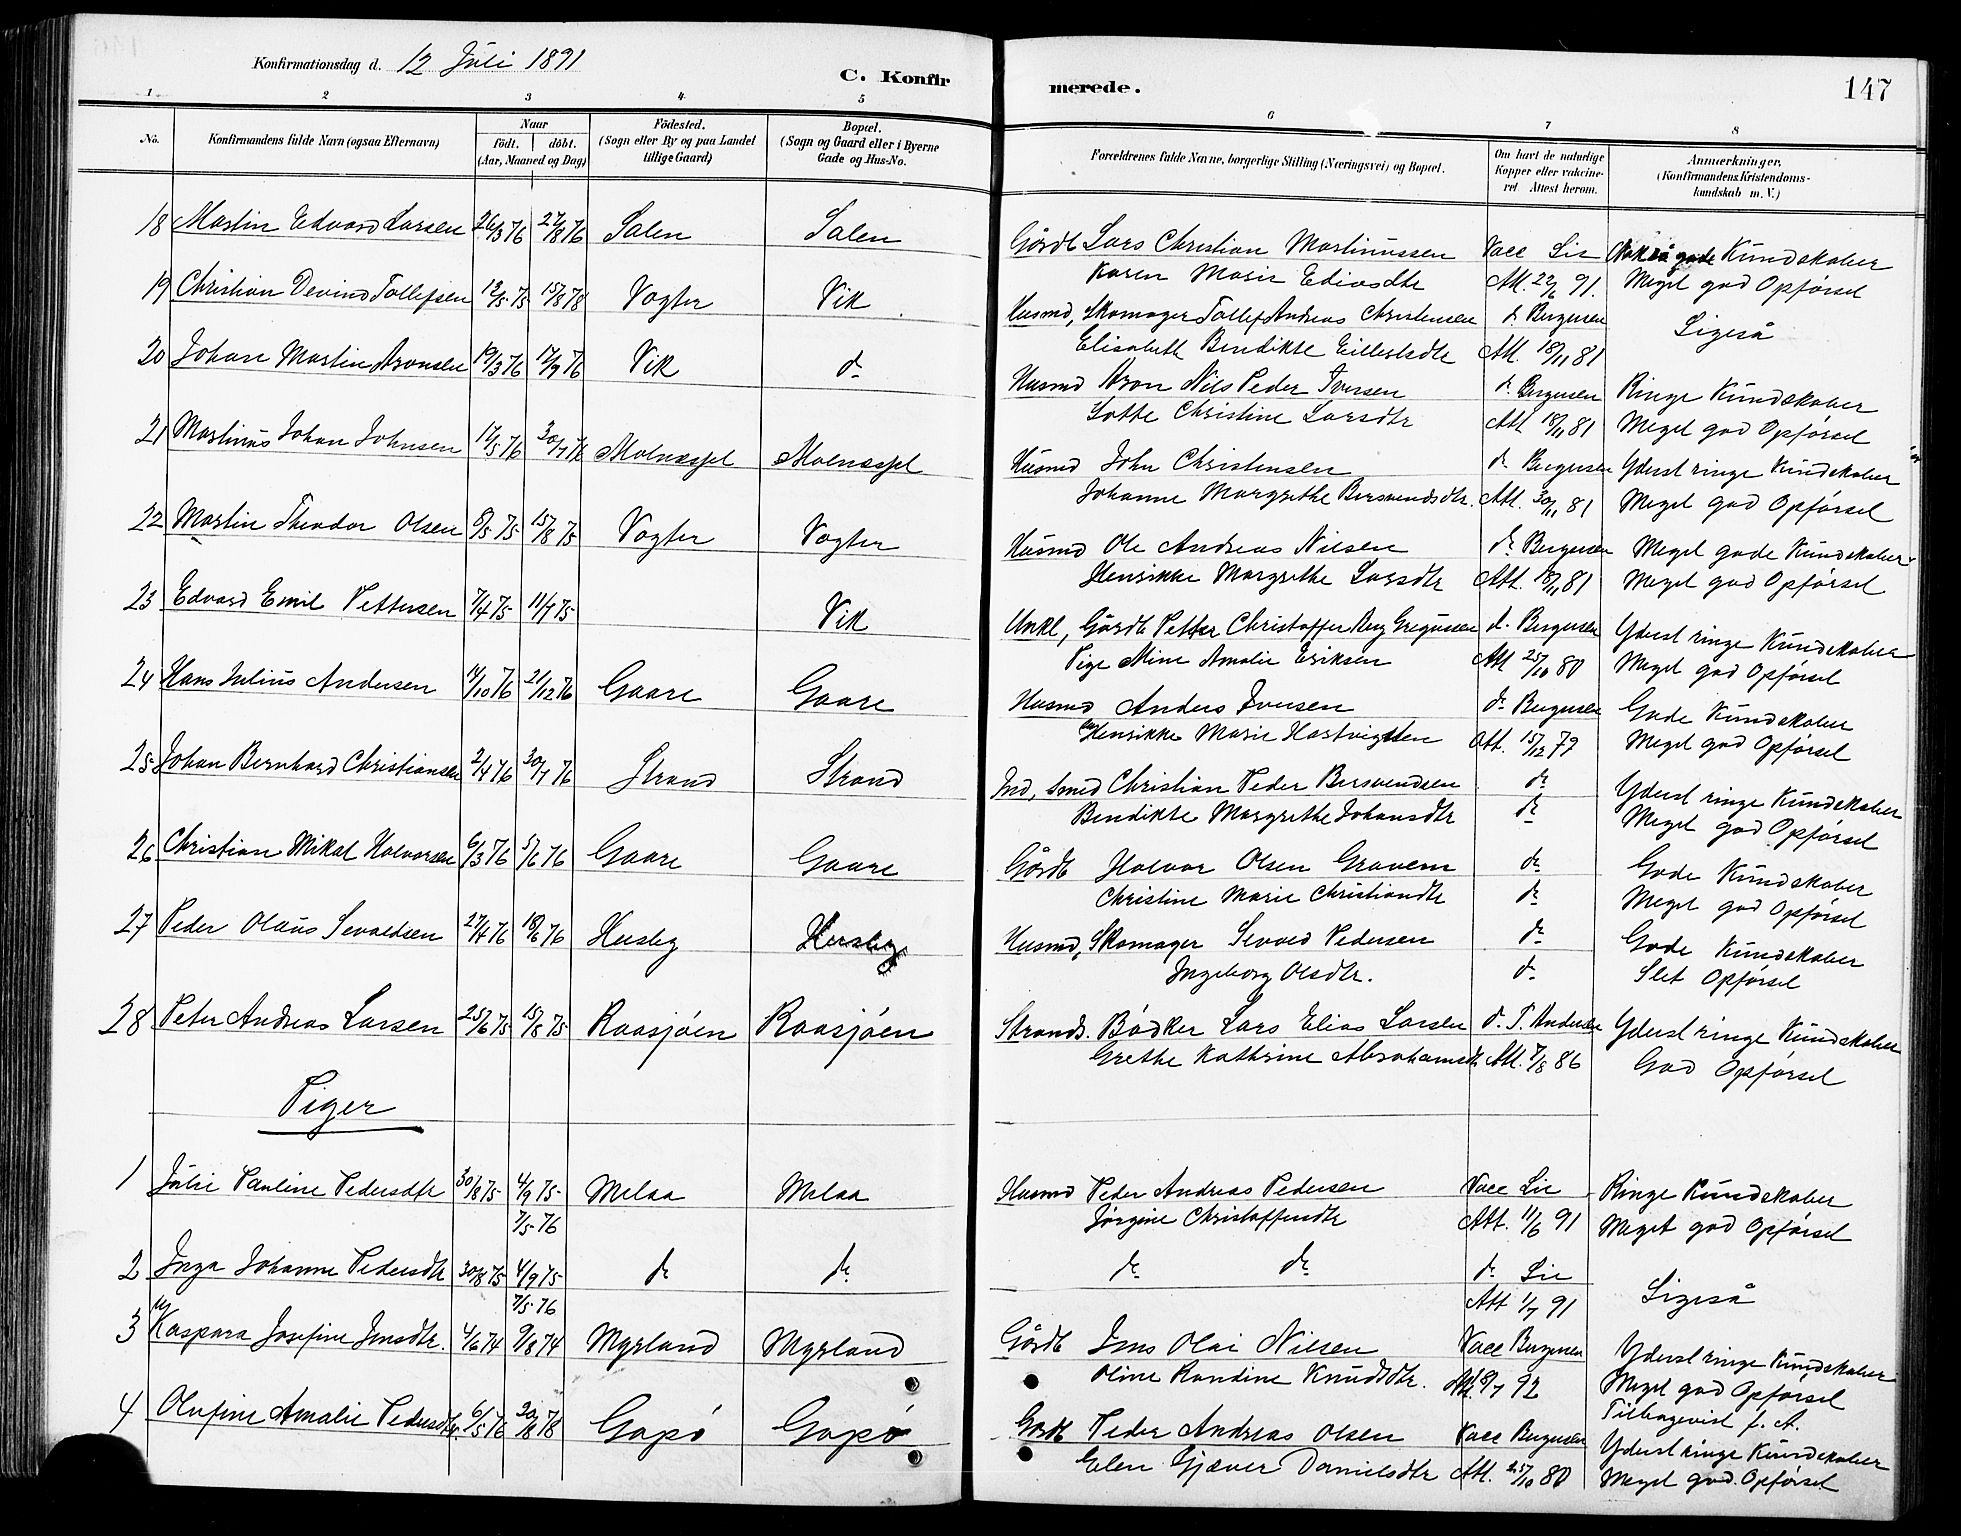 Konfirmationsdag d. 12 Juli 1891
C. Konfirmerede.
147
1 2 3 4 5 6 7 8
No.
Konfirmandens fulde Navn (ogsaa Efternavn)
Naar
født. døbt.
(Aar, Maaned og Dag)
Fødested.
(Sogn eller By og paa Landet
tillige Gaard)
Bopæl.
(Sogn og Gaard eller i Byerne
Gade og Hus-No.
Forældrenes fulde Navne, borgerlige Stilling (Næringsvei) og Bopæl.
Om havt de naturlige
Kopper eller vakcine-
ret. Attest herom.
Anmærkninger.
(Konfirmandens Kristendoms-
kundskab m. V.)
18 Martin Edvard Larsen 26/3 76 27/8 76 Salen Salen Gårdb Lars Christian Martinussen Vacc Lie Nokså gode Kundskaber
Karen Marie Ediasdtr Att. 22/6 91. Meget god Opførsel
19 Christian Devind Tollefsen 12/5 75 15/8 75 Vogter Vik Husmd, Skomager Tollef Andreas Christensen d. Bergersen Ligeså
Elisabeth Bendikte Eillertsdtr Att. 18/11 81
20 Johan Martin Aronsen 19/3 76 17/9 76 Vik do Husmd Aron Nils Peder Iversen do Bergersen Ringe Kundskaber
Lotte Christine Larsdtr Att 18/11 81 Meget god Opførsel
21 Martinus Johan Johnsen 17/5 76 30/7 76 Molnesjel Molnesjel Husmd John Christensen do Bergersen Yderst ringe Kundskaber
Johanne Margrethe Bersvendsdtr. Att. 30/11 81 Meget god Opførsel
22 Martin Theodor Olsen 8/5 75 15/8 75 Vogter Vogter Husmd Ole Andreas Nilsen do Bergersen Meget gode Kundskaber
Henrikke Margrethe Larsdtr Att. 18/11 81 Meget god Opførsel
23 Edvard Emil Pettersen 7/4 75 11/7 75 Vik Unkl, Gårdb Petter Christoffer Berg Gregusen d. Bergersen Yderst ringe Kundskaber
Pige Mine Amalie Eriksen Att 25/10 80 Meget god Opførsel
24 Hans Julius Andersen 14/10 76 21/12 76 Gaare Gaare Husmd Anders Iversen do Bergersen Gode Kundskaber
Henrikke Marie Hartvigsen Att. 15/12 79 Meget god Opførsel
25 Johan Bernhard Christiansen 2/4 76 30/7 76 Strand Strand Ind, Smed Christian Peder Bersvendsen do Yderst ringe Kundskaber
Bendikte Margrethe Johansdtr do Meget god Opførsel
26 Christian Mikal Halvorsen 6/3 76 5/6 76 Gaare Gaare Gårdb Halvor Olsen Gravem do Gode Kundskaber
Christine Marie Christiandtr do Meget god Opførsel
27 Peder Olaus Sevaldsen 27/4 76 18/6 76 Husby Husby Husmd, Skomager Sevald Pedersen do Gode Kundskaber
Ingeborg Olsdtr. do Slet Opførsel
28 Peter Andreas Larsen 25/6 75 15/8 75 Raasjøen Raasjøen Strands. Bødker Lars Elias Larsen d. P. Andersen Yderst ringe Kundskaber
Grethe Kathrine Abrahamsdtr Att. 7/8 86 God Opførsel
Piger
1 Julie Pauline Pedersdtr 30/8 75 4/9 75 Melaa Melaa Husmd Peder Andreas Pedersen Vacc Lie Ringe Kundskaber
7/5 76 Jørgine Christoffersdtr Att. 11/6 91 Meget god Opførsel
2 Inga Johanne Pedersdtr 30/8 75 4/9 75 do do do do do Lie Ligeså
7/5 76 Att 1/7 91
3 Kaspara Josefine Jensdtr. 4/6 74 9/8 74 Myrland Myrland Gårdb Jens Olai Nilsen Vacc Bergersen Yderst ringe Kundskaber
Oline Randine Knudsdtr. Meget god Opførsel
Tilbagevist f. A.
4 Olufine Amalie Pedersdtr. 6/5 76 20/8 76 Gapø Gapø Gårdb Peder Andreas Olsen Vacc Bergersen Yderst ringe Kundskaber
Elen Gjæver Danielsdtr Att. 25/10 80 Meget god Opførsel